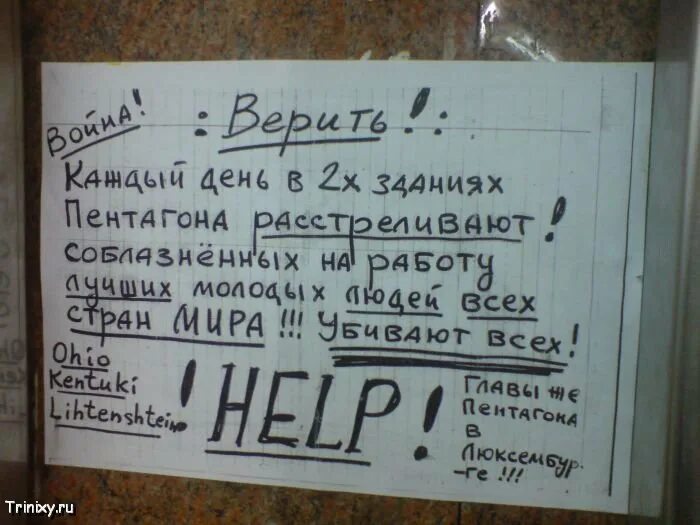 Война!
: Верить!:
Каждый день в 2х зданиях
Пентагона расстреливают!
соблазнённых на работу
лучших молодых людей всех
стран МИРА !!! Убивают всех!
Ohio
Kentuki
Lihtenshtein.
! HELP!
Главы же
Пентагона
в
Люксембур-
-ге !!!
Trinixy.ru